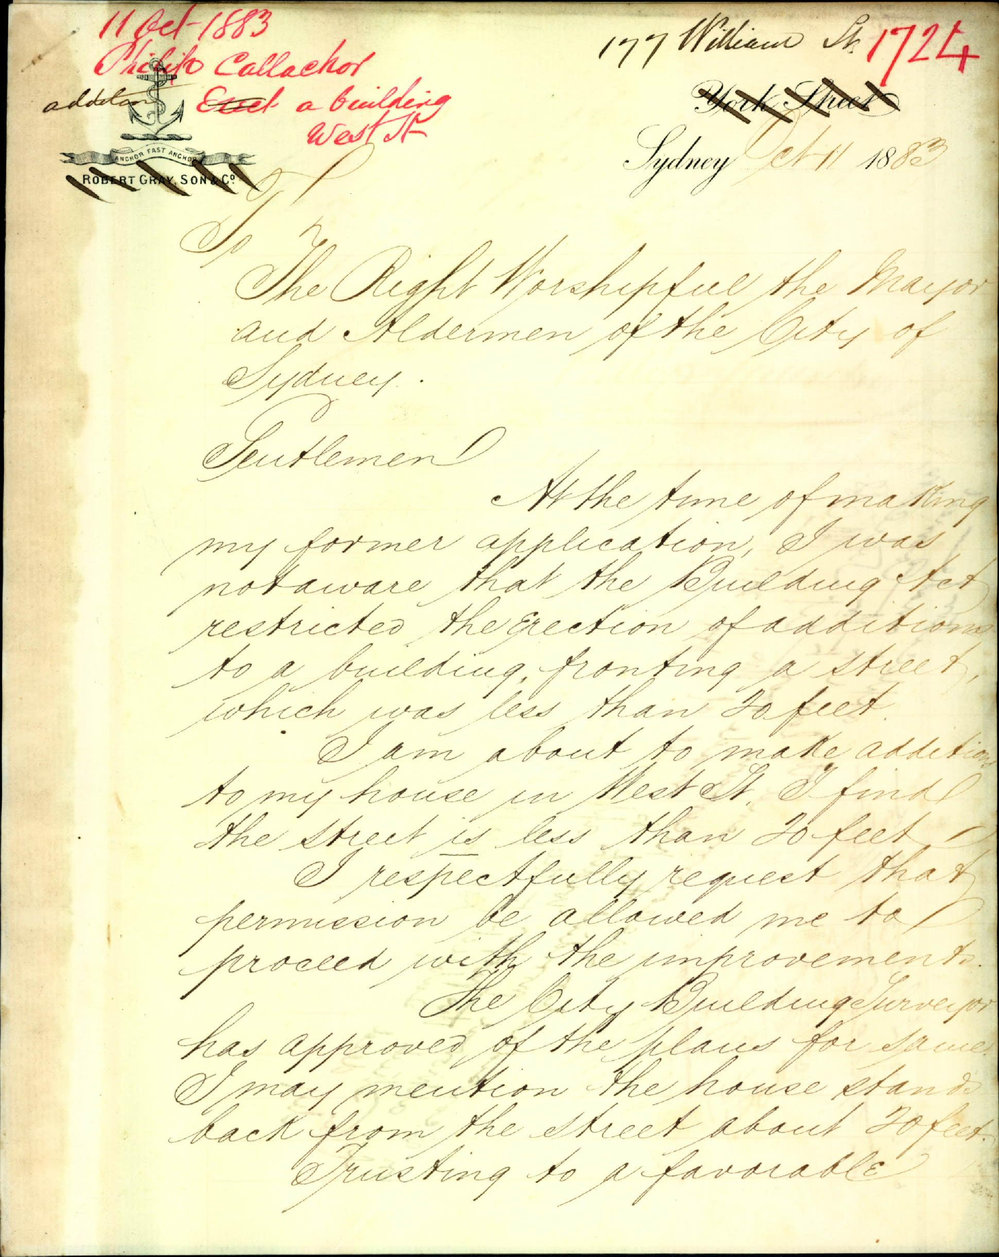 11 Oct 1883
Philip Callachor
addition Erect a building
West St
177 William St. 1724
York Street
Sydney Oct 11 1883
ANCHOR FAST ANCHOR
ROBERT GRAY, SON & Co.
To
The Right Worshipful the Mayor
and Aldermen of the City of
Sydney.
Gentlemen
At the time of making
my former application, I was
not aware that the Building Act
restricted the Erection of additions
to a building, fronting a street,
which was less than 20 feet.
I am about to make additions
to my house in West St. I find
the street is less than 20 feet
I respectfully request that
permission be allowed me to
proceed with the improvements.
The City Building Surveyor
has approved of the plans for same.
I may mention the house stands
back from the street about 20 feet.
Trusting to a favorable